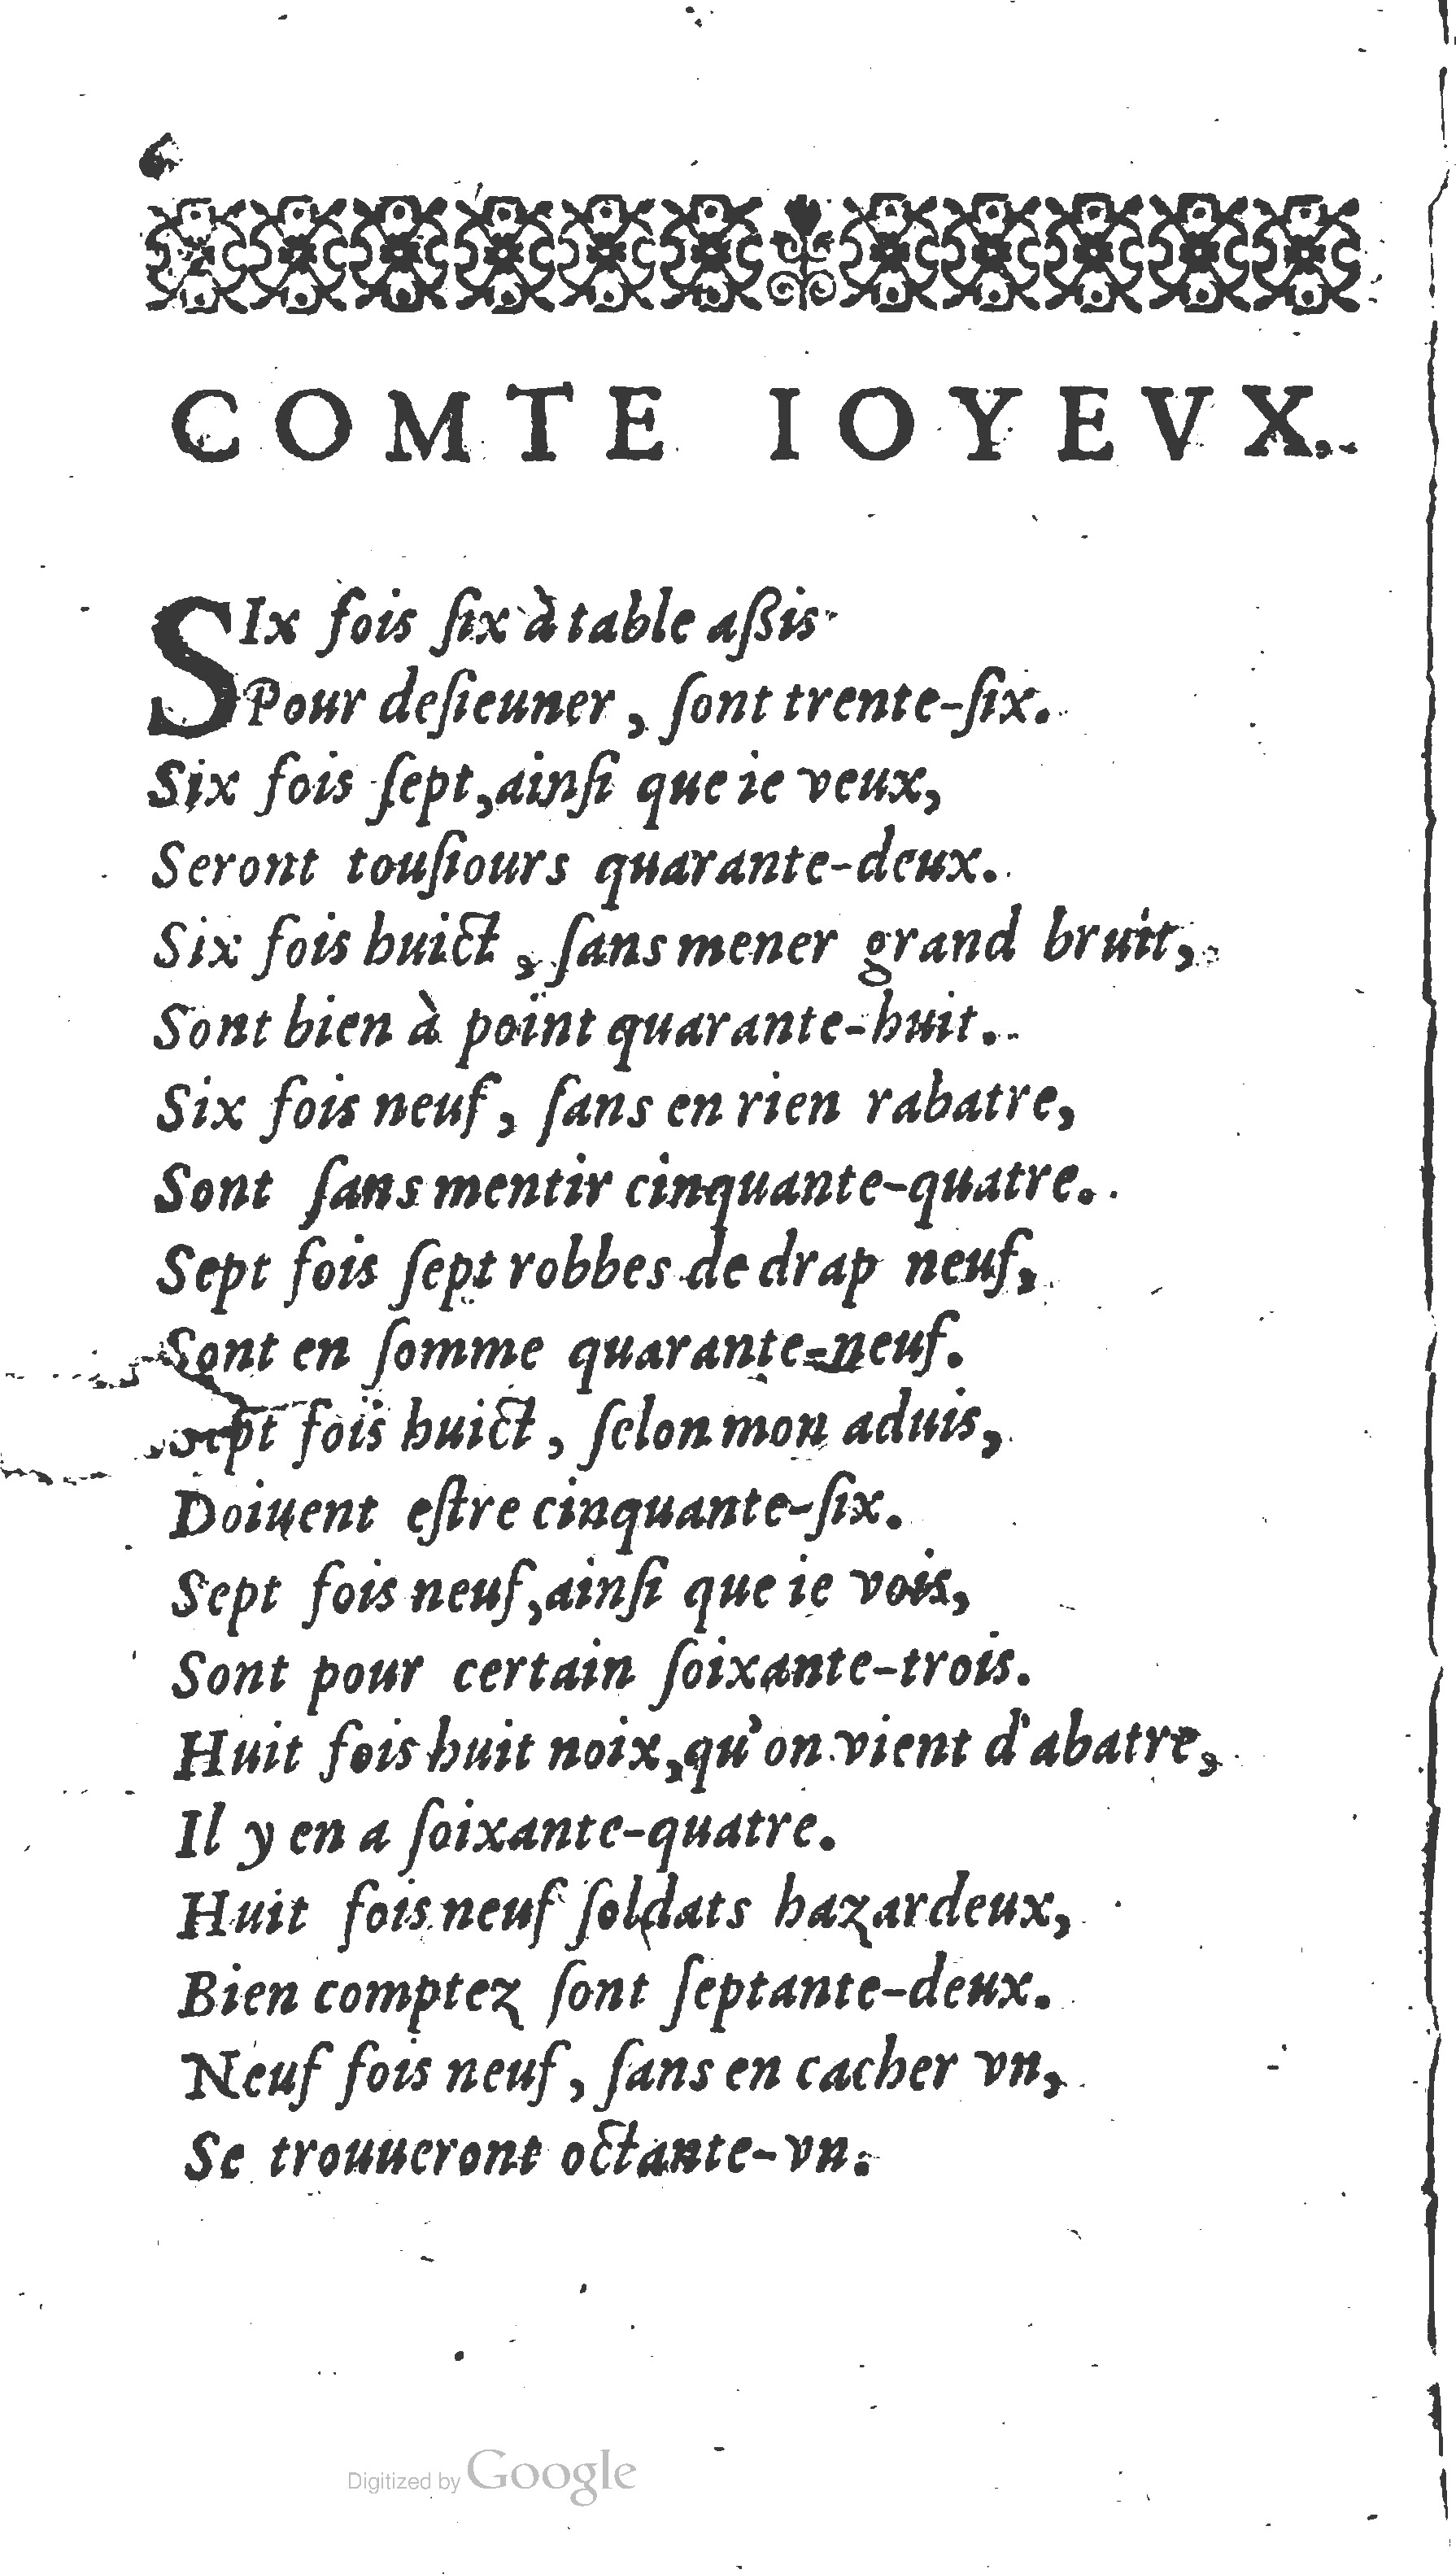 6
COMTE IOYEVX,
SIx fois ſix à table aßis
Pour deſieuner, ſont trente-ſix.
Six fois ſept, ainſi que ie veux,
Seront touſiours quarante-deux.
Six fois huict, ſans mener grand bruit,
Sont bien à point quarante-huit.
Six fois neuf, ſans en rien rabatre,
Sont ſans mentir cinquante-quatre.
Sept fois ſept robbes de drap neuf,
Sont en ſomme quarante-neuf.
Sept fois huict, ſelon mon aduis,
Doiuent eſtre cinquante-ſix.
Sept fois neuf, ainſi que ie vois,
Sont pour certain ſoixante-trois.
Huit fois huit noix, qu'on vient d'abatre,
Il y en a ſoixante-quatre.
Huit fois neuf ſoldats hazardeux,
Bien comptez ſont ſeptante-deux.
Neuf fois neuf, ſans en cacher vn,
Se trouueront octante-vn.
Digitized by Google